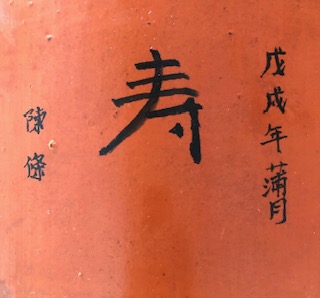 戊戌年蒲月
寿
陳條